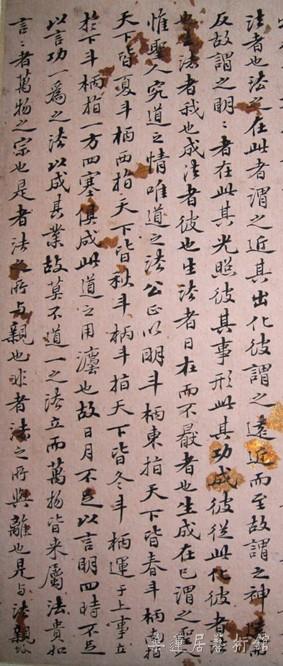 法者也法之在此者謂之近其出化彼謂之遠近而至故謂之神遠
反故謂之明〻者在此其光照彼其事形此其功成彼從此化彼者
也生法者我也成法者彼也生法者日在而不厭者也生成在己謂之聖
惟聖人究道之情唯道之法公正以明斗柄東指天下皆春斗柄指
天下皆夏斗柄西指天下皆秋斗柄指天下皆冬斗柄運于上事立
於下斗柄指一方四塞俱成此道之用灋也故日月不足以言明四時不足
以言功一為之法以成其業故莫不道一之法立而萬物皆来屬法貴如
言〻者萬物之宗也是者法之所与親也非者法之所與離也是与法親故
居藝術院